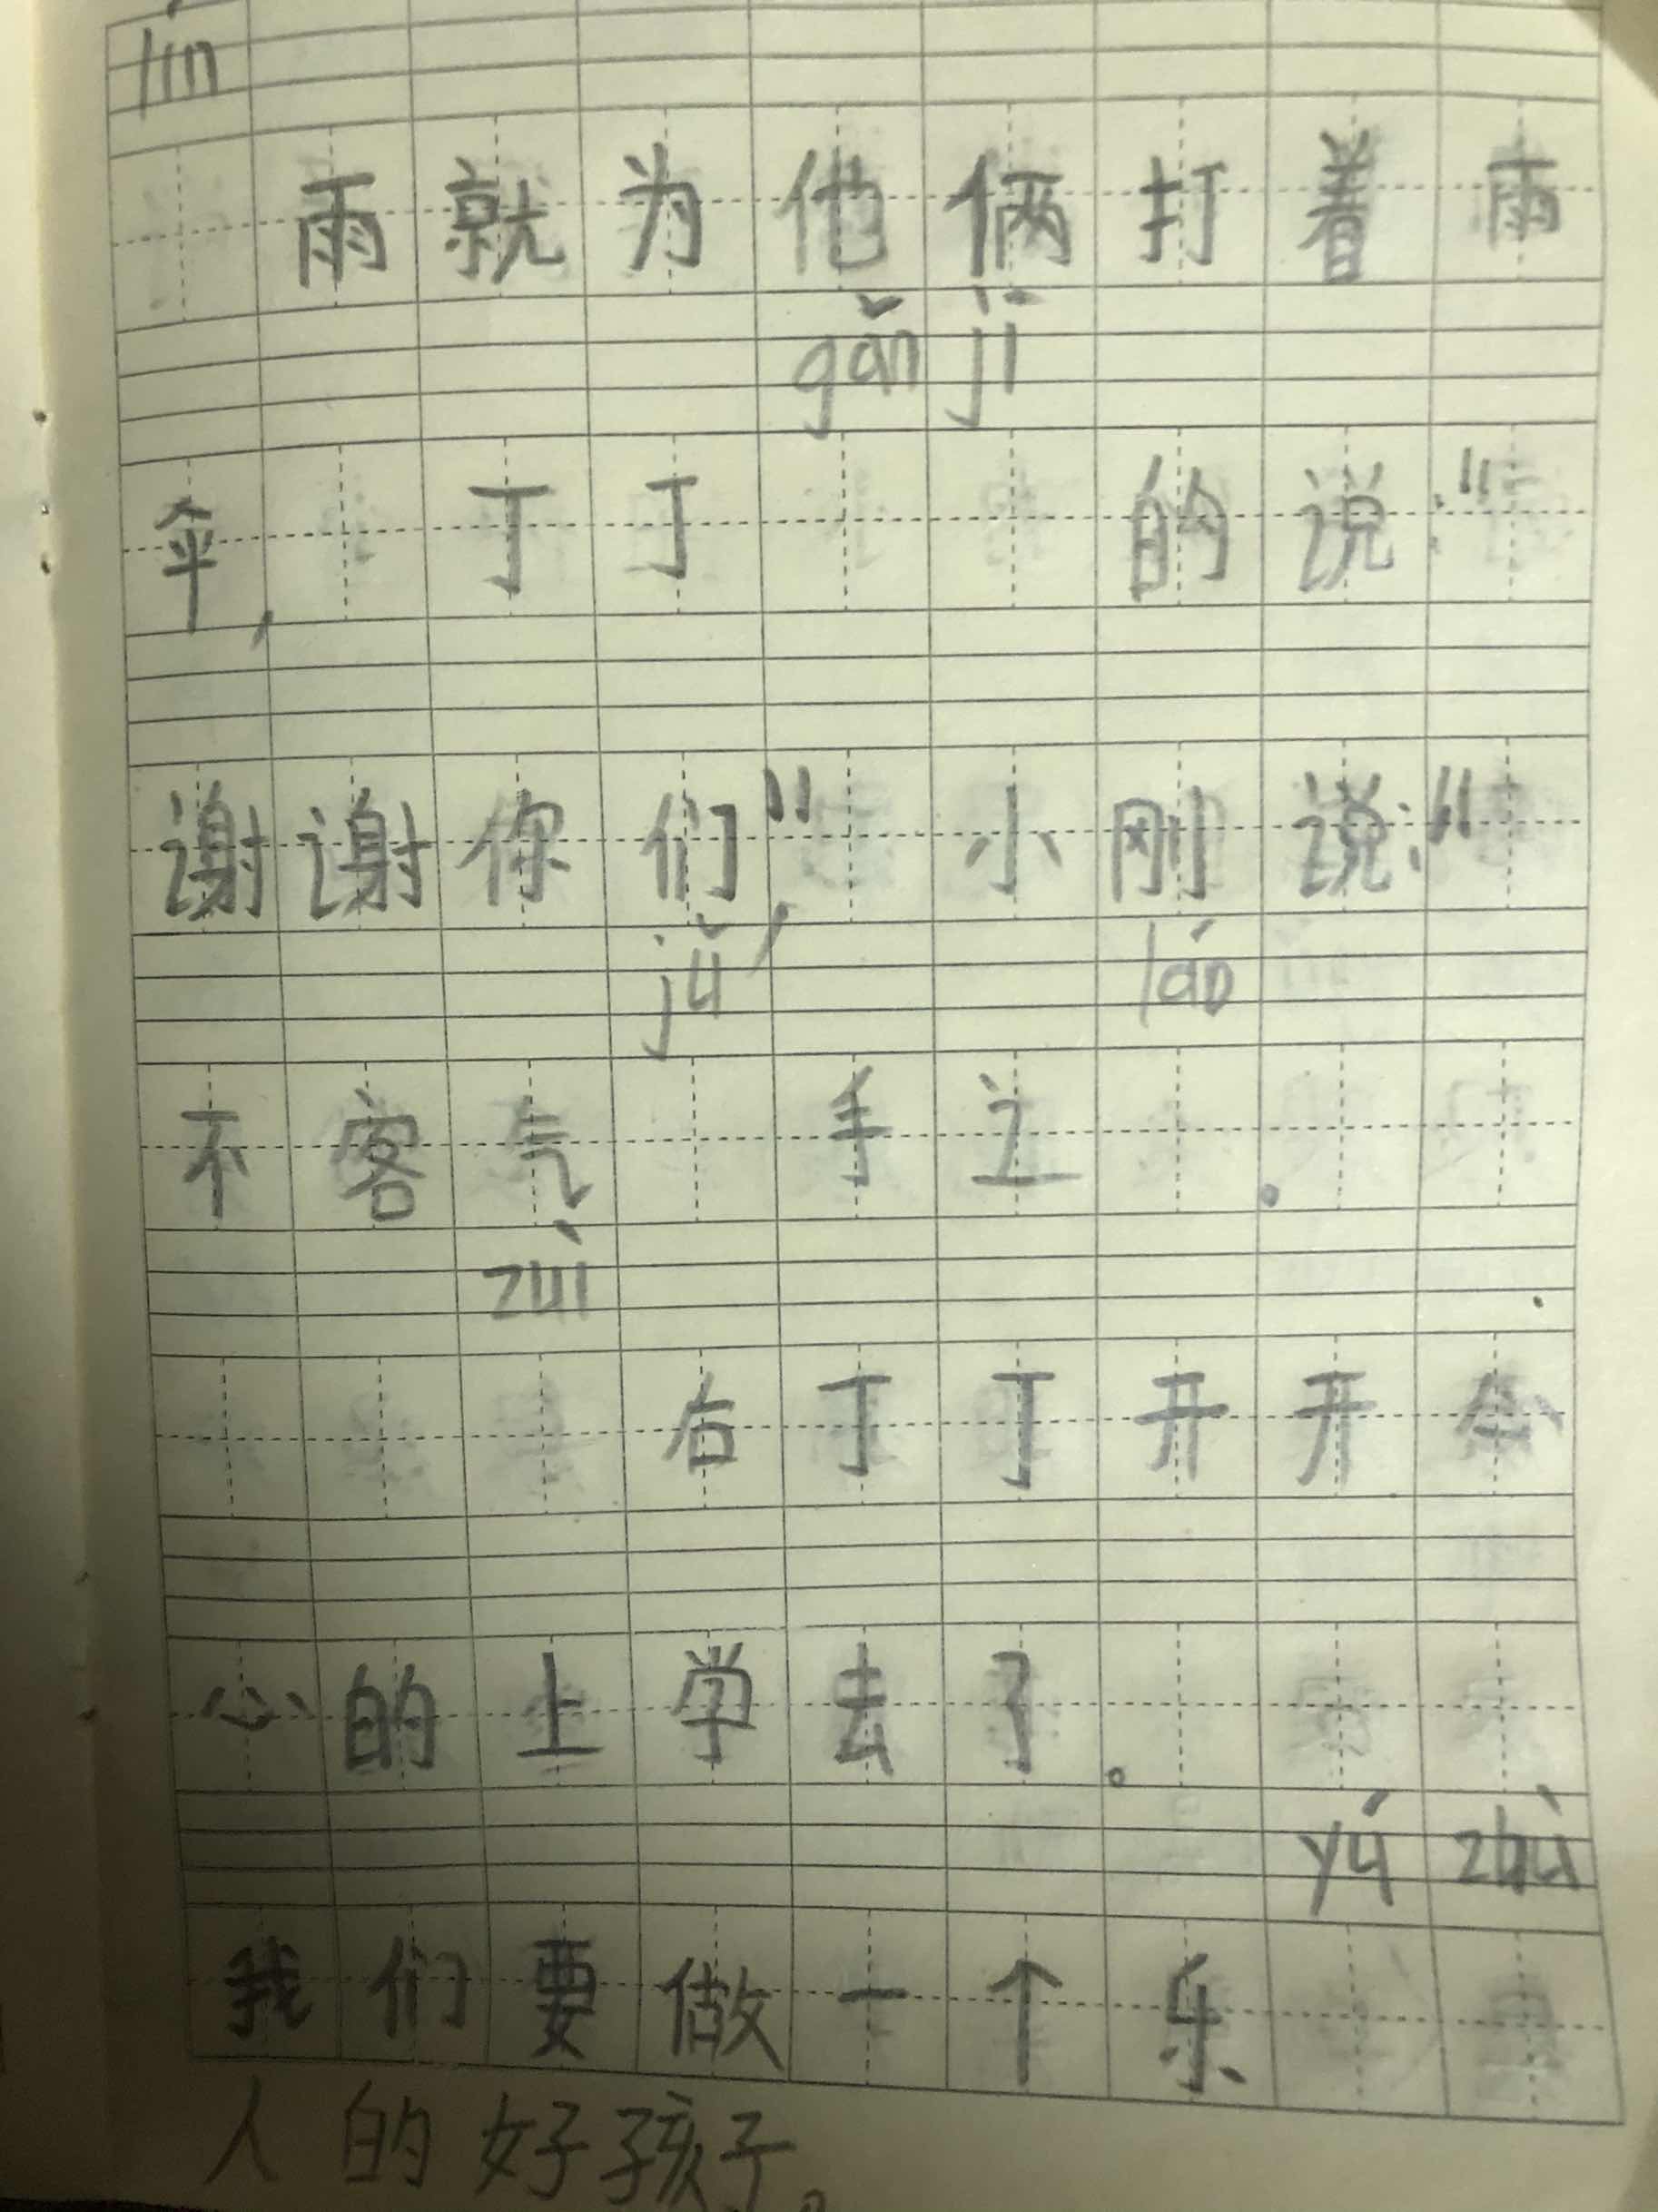 lín
雨就为他俩打着雨
gǎn jī
伞,丁丁的说:"
谢谢你们",小刚说:"
jǔ láo
不客气手之。
zuì
后丁丁开开心
心的上学去了。
yú zhù
我们要做一个乐
人的好孩子。